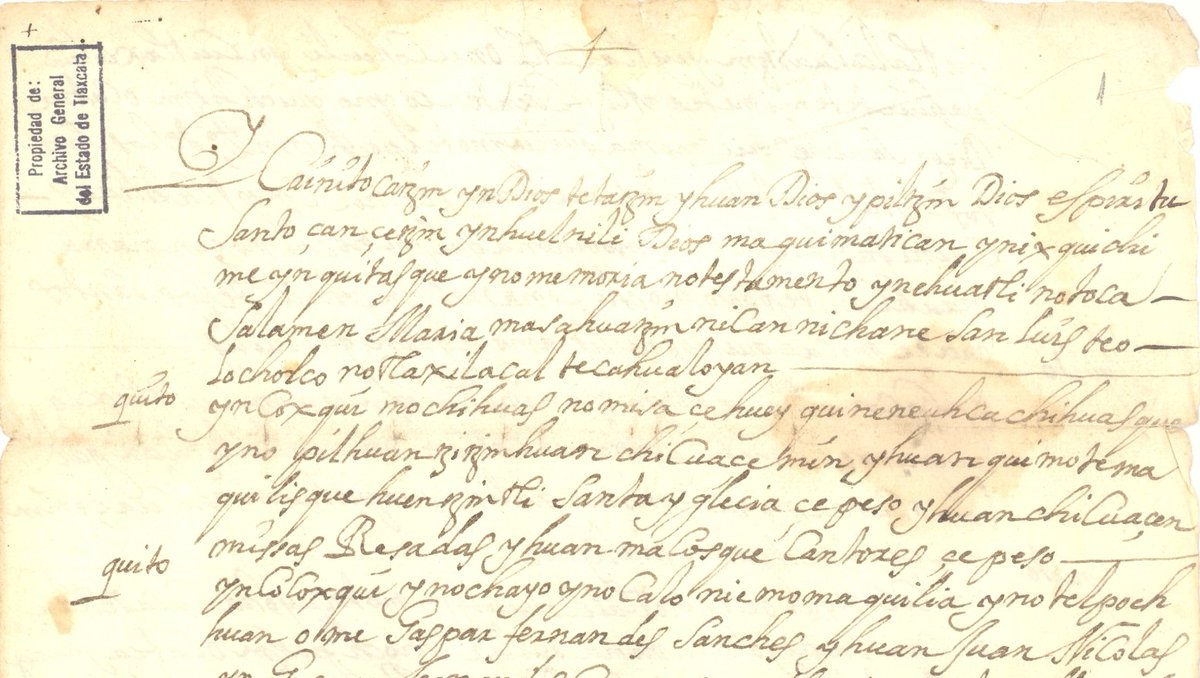 +
Propiedad de:
Archivo General
del Estado de Tlaxcala.
1
Y Caininitocatzin yn Dios tetatzin yhuan Dios ypiltzin Dios espiritu
Santo çan çetzin ynhuelnili Dios ma quimatican ynixquichi
me ynquitasque ynomemoria notestamento ynehuatli notoca
Salamen Maria masahuatzin nican nichane San Luis teo
locholco notlaxilacal tecahualoyan
quito
yncoxqui mochihuas nomisa ce huey quineneuhcachihuasque
yno pilhuantzitzinhuan chicuacemin yhuan quimotema
quilisque huentzintli Santa yglecia çe peso yhuan chicuaçen
missas Resadas yhuan macosque Cantores çe peso
quito
yncocoxqui ynochayo ynocalo niemomaquilia ynotelpoch
huan ome Gaspar fernandes Sanches yhuan Juan Nicolas